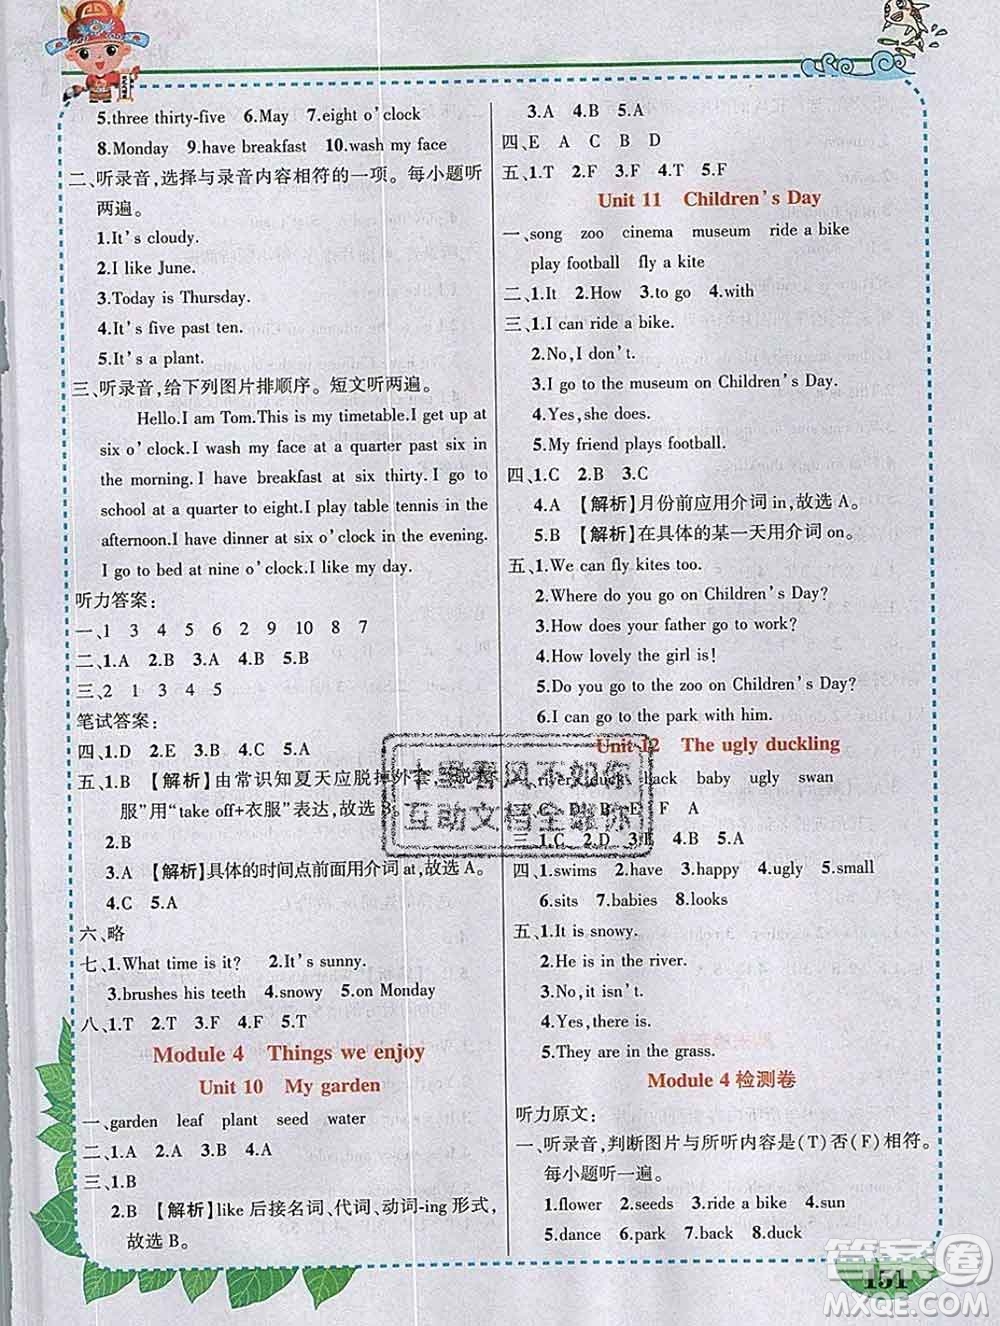 5.three thirty-five 6.May 7.eight o'clock
8.Monday 9.have breakfast 10.wash my face
二、听录音,选择与录音内容相符的一项。每小题听
两遍。
1.It's cloudy.
2.I like June.
3.Today is Thursday.
4.It's five past ten.
5.It's a plant.
三、听录音,给下列图片排顺序。短文听两遍。
Hello.I am Tom.This is my timetable.I get up at
six o'clock.I wash my face at a quarter past six in
the morning.I have breakfast at six thirty.I go to
school at a quarter to eight.I play table tennis in the
afternoon.I have dinner at six o'clock in the evening.
I go to bed at nine o'clock.I like my day.
听力答案:
一、1 3 4 5 6 2 9 10 8 7
二、1.A 2.B 3.A 4.A 5.B
三、2 1 3 4 5
笔试答案:
四、1.D 2.E 3.B 4.C 5.A
五、1.B 【解析】由常识知夏天应脱掉外套,“脱衣
服”用“take off+衣服”表达,故选B。
2.B
3.A 【解析】具体的时间点前面用介词at,故选A。
4.C 5.A
六、略
七、1.What time is it? 2.It's sunny.
3.brushes his teeth 4.snowy 5.on Monday
八、1.T 2.T 3.F 4.F 5.T
Module 4 Things we enjoy
Unit 10 My garden
一、garden leaf plant seed water
二、1.A 2.A 3.B 4.A 5.B
三、1.B
2.B 【解析】like后接名词、代词、动词-ing形式,
故选B。
3.A 4.B 5.A
四、E A C B D
五、1.T 2.F 3.F 4.T 5.F
Unit 11 Children's Day
一、song zoo cinema museum ride a bike
play football fly a kite
二、1.It 2.How 3.to go 4.with
三、1.I can ride a bike.
2.No,I don't.
3.I go to the museum on Children's Day.
4.Yes,she does.
5.My friend plays football.
四、1.C 2.B 3.C
4.A 【解析】月份前应用介词in,故选A。
5.B 【解析】在具体的某一天用介词on。
五、1.We can fly kites too.
2.Where do you go on Children's Day?
3.How does your father go to work?
4.How lovely the girl is!
5.Do you go to the zoo on Children's Day?
6.I can go to the park with him.
Unit 12 The ugly duckling
一、river duck black baby ugly swan
二、C A D B E F
三、1.C 2.D 3.E 4.B 5.A
四、1.swims 2.have 3.happy 4.ugly 5.small
6.sits 7.babies 8.looks
五、1.It is snowy.
2.He is in the river.
3.No,it isn't.
4.Yes,there is.
5.They are in the grass.
Module 4检测卷
听力原文:
一、听录音,判断图片与所听内容是(T)否(F)相符。
每小题听一遍。
1.flower 2.seeds 3.ride a bike 4.sun
5.dance 6.park 7.back 8.duck
十里春风不如你
互动文档全靠你
151
答案圈
MXQE.COM